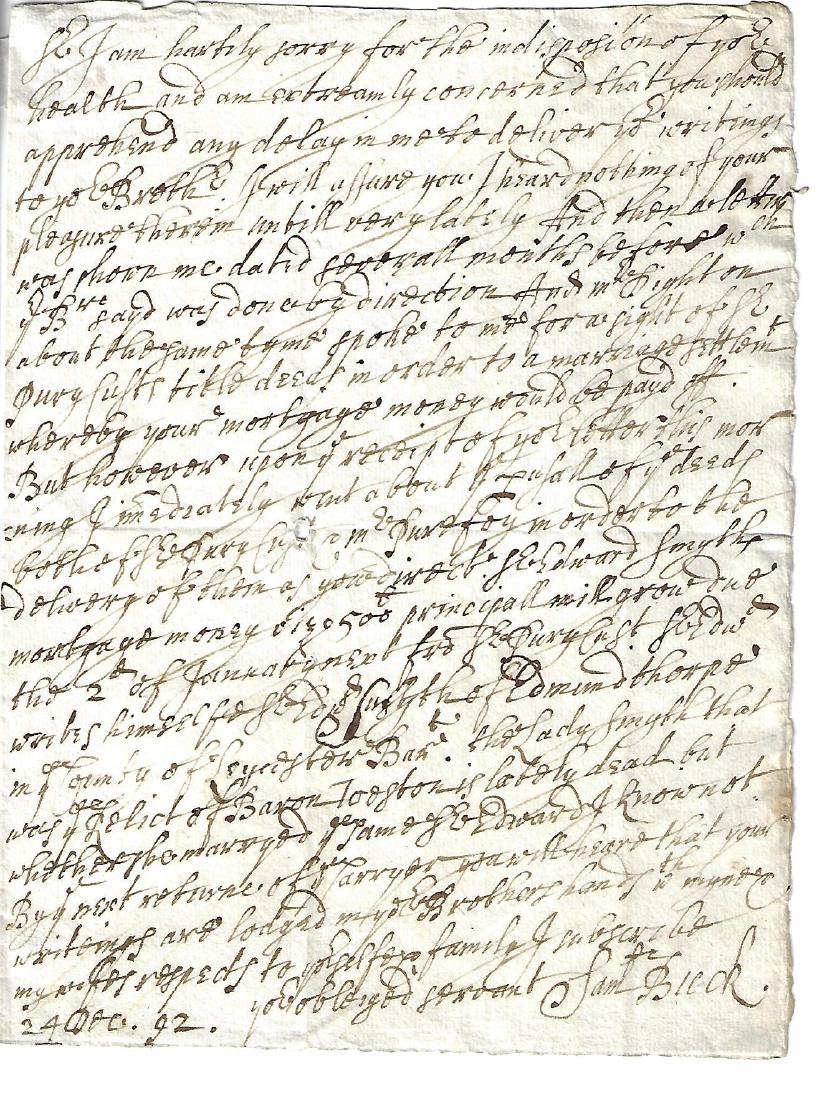 Sr I am hartily sorry for the indisposic'on of yor
health and am extreamly concerned that you should
apprehend any delay in me to deliver yor writings
to yor Brothr. I will assure you I heard nothing of your
pleasure therein untill very lately And then a letter
was shown me dated severall months before wch
yr Brs sayd was done by direction And mr Highton
about the same tyme spoke to me for a sight of Sr
Pury Custs title deeds in order to a marriage settlemt
whereby your mortgage money would be payd off.
But however upon ye receipt of yor letter this mor
ning I im'ediately went about ye p'usall of ye deeds
both of Sr Pury Cust & mr Purefoy in order to the
delivery of them as you direct. Sr Edward Smyths
mortgage money viz 500l principall will grow due
the 2d of January next from Sr Pury Cust Sr Edwd
writes himselfe Sr Edwd Smyth of Edmundthorpe
in ye County of Leycester Bart. the Lady Smyth that
was ye Relict of Baron Weston is lately dead but
whither she marryed ye same Sr Edward I know not
By ye next returne of ye Carryer you will heare that your
writeings are lodged in yor Brothers hands wth myne &
my wifes respects to yorselfe & family I subscribe
yor obleiged servant Samll Bieck.
24 Dec. 92.